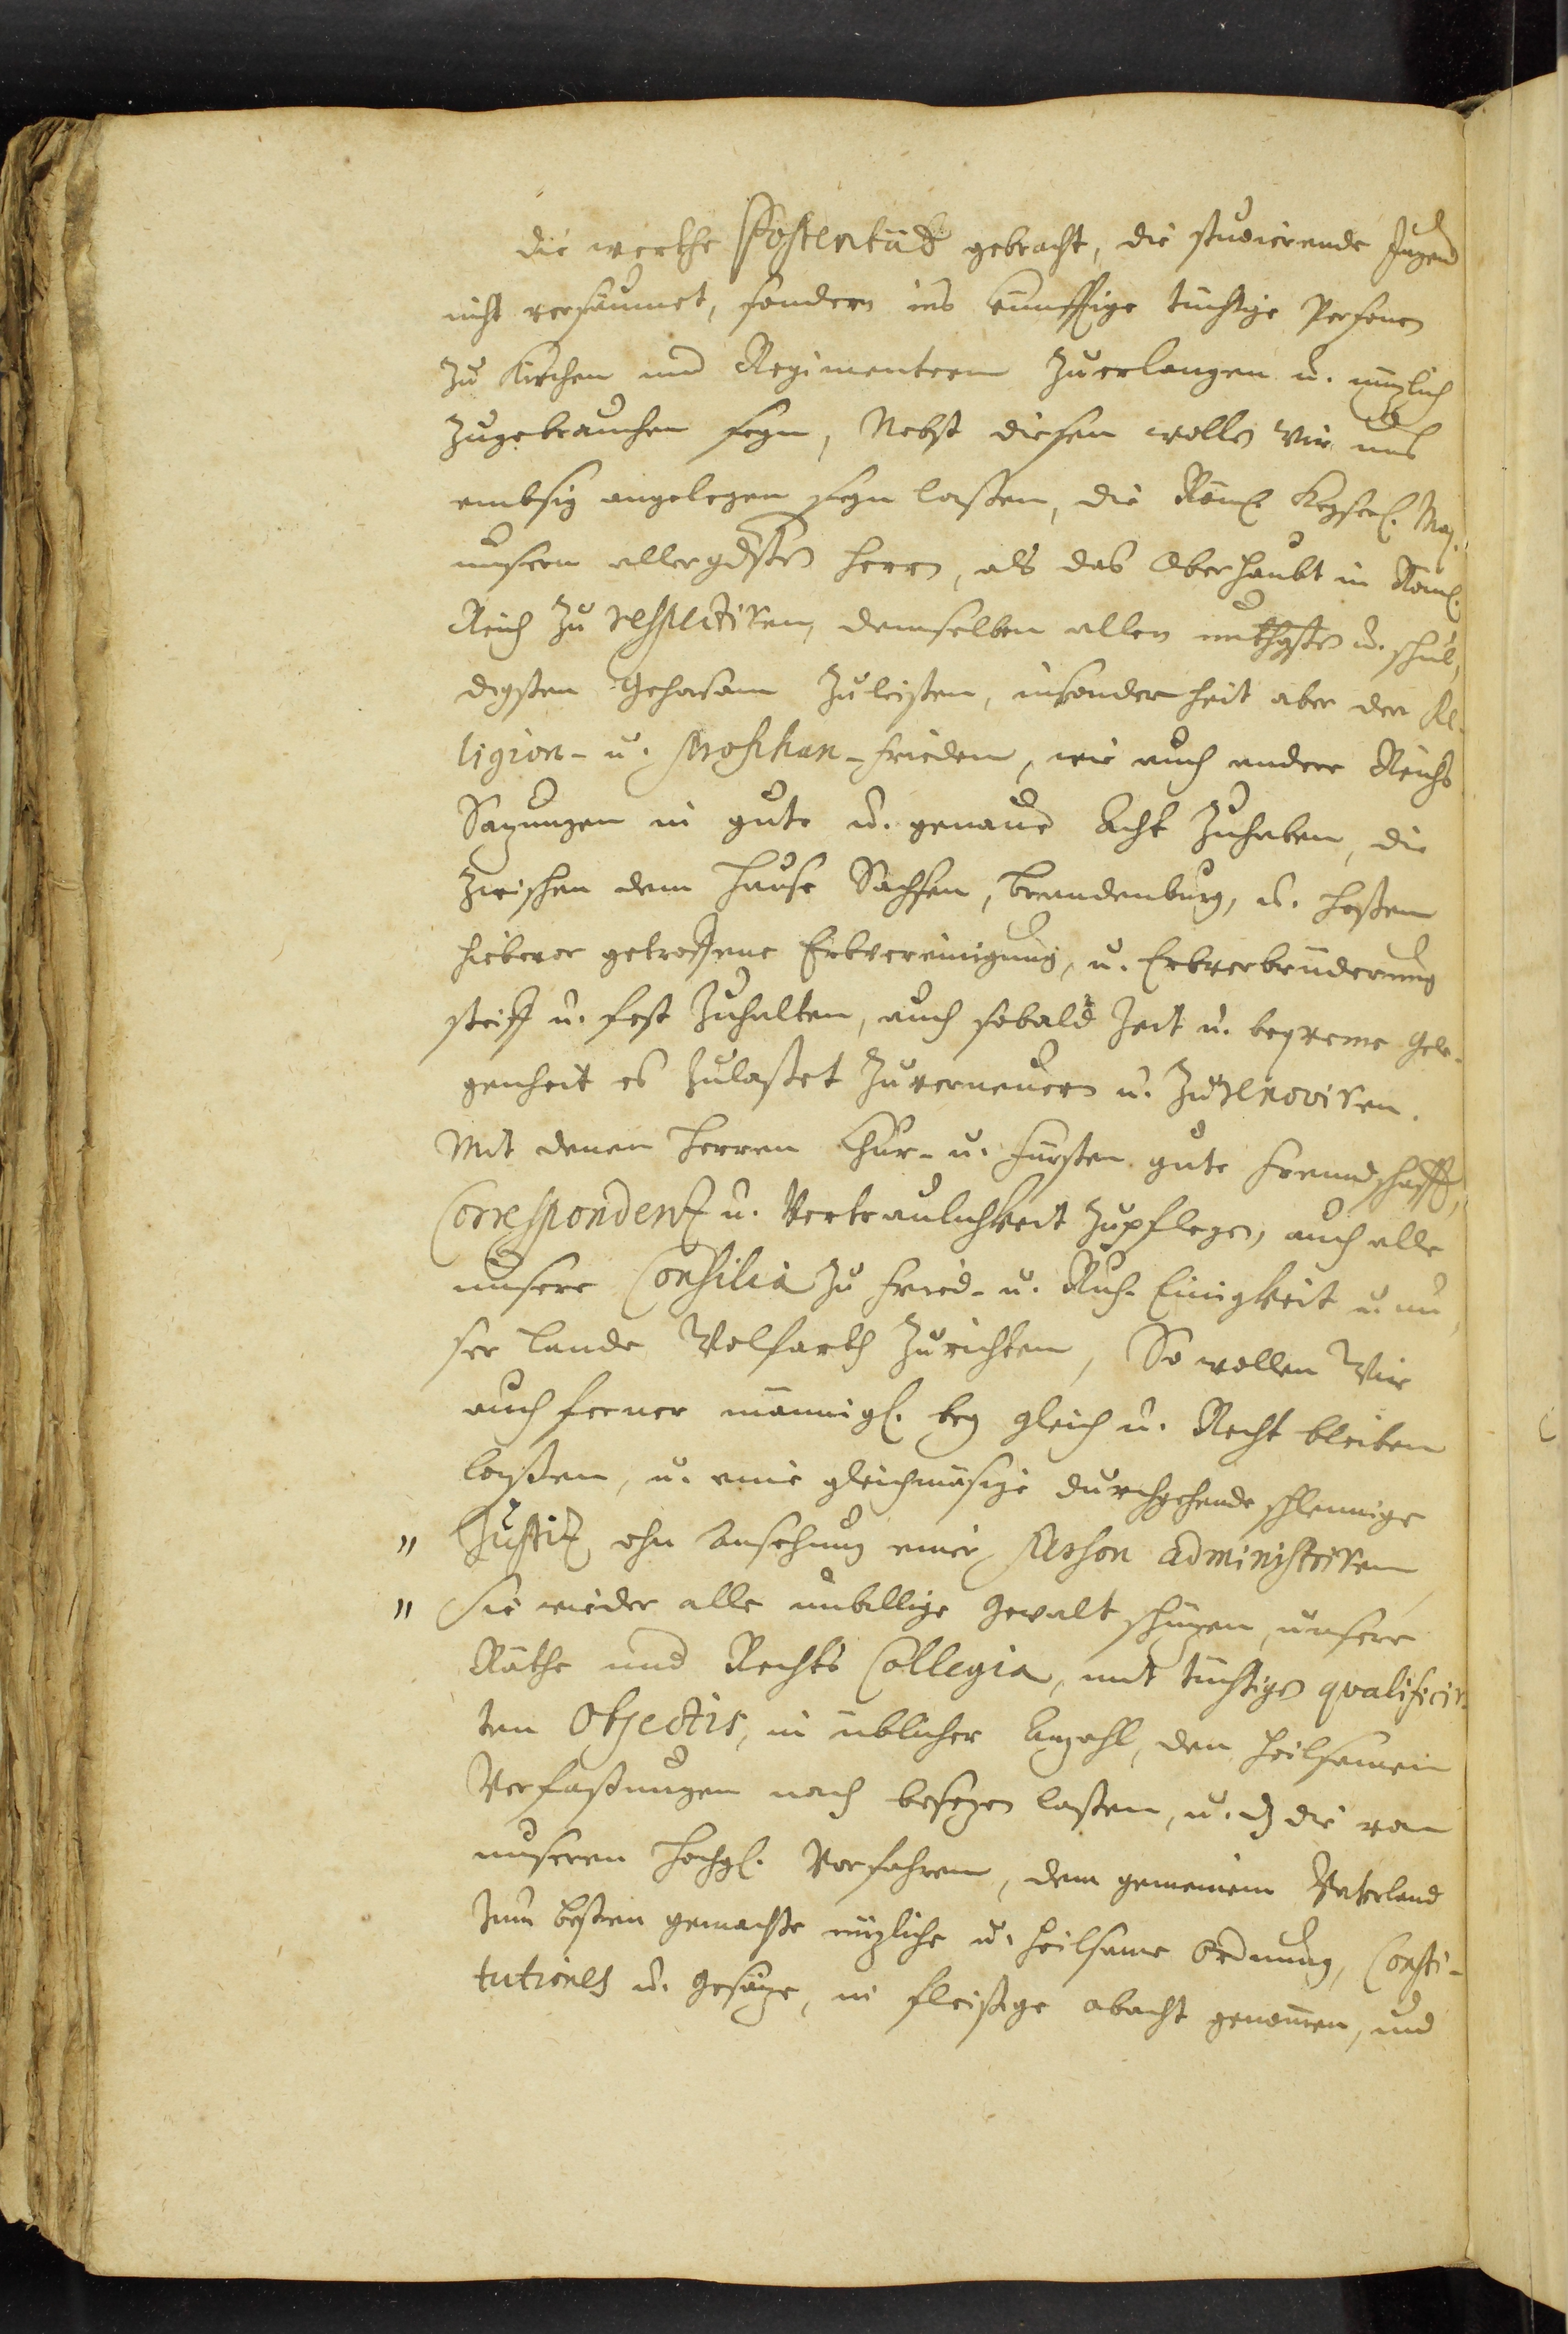 die werthe Posterität gebracht, die studierende Jugend
nicht versäumet, sondern ins künfftige tüchtige Persones
zu Kirchen und Regimentern zuerlangen u. nuzlich
zugebrauchen seyn, Nebst diesen wollen wir uns
embsig angelegen seyn laßen, die Röml. Keyserl. Maj.
unsern allergdsten Herrn, als das Oberhaubt im Röml.
Reich zu respectiren, demselben allen unthgsten u. schul,
digsten Gehorsam zuleisten, insonderheit aber den Re-
ligion- u. Prophan-Frieden, wie auch andere Reichs
Sazungen in gute u. genaue Acht zuhaben, die
zwischen dem Hause Sachsen, Brandenburg, u. Heßen
hiebevor getroffene Erbvereinigung, u. Erbverbrüderung
steiff u. fest zuhalten, auch sobald Zeit u. beqveme Gele-
genheit es zulaßet zuverneuern u. zu renoviren.
Mit denen Herren Chur- u. Fürsten gute Freundschafft,
Correspondenz u. Vertraulichkeit zupflegen, auch alle
unsere Consilia zu Fried- u. Ruh- Einigkeit u. un,
ser Lande Wolfarth zurichten, So wollen Wir
auch ferner männigl. bey gleich u. Recht bleiben
laßen, u. eine gleichmäsige durchgehende schleunige
" Justiz ohn Ansehung einer Person administriren
" Sie wieder alle unbillige Gewalt schüzen, unsere
Räthe und Rechts Collegia, mit tüchtigen qvalificir-
ten Objectis, in üblicher Anzahl, den heilsamen
Verfaßungen nach besezen laßen, u. dz die von
unseren Hochgl. Vorfahren, dem gemeinen Vaterland
zum besten gemachte nüzliche u. heilsame Ordnung, Consti-
tutiones u. Gesäze, in fleißige obacht genomen, und